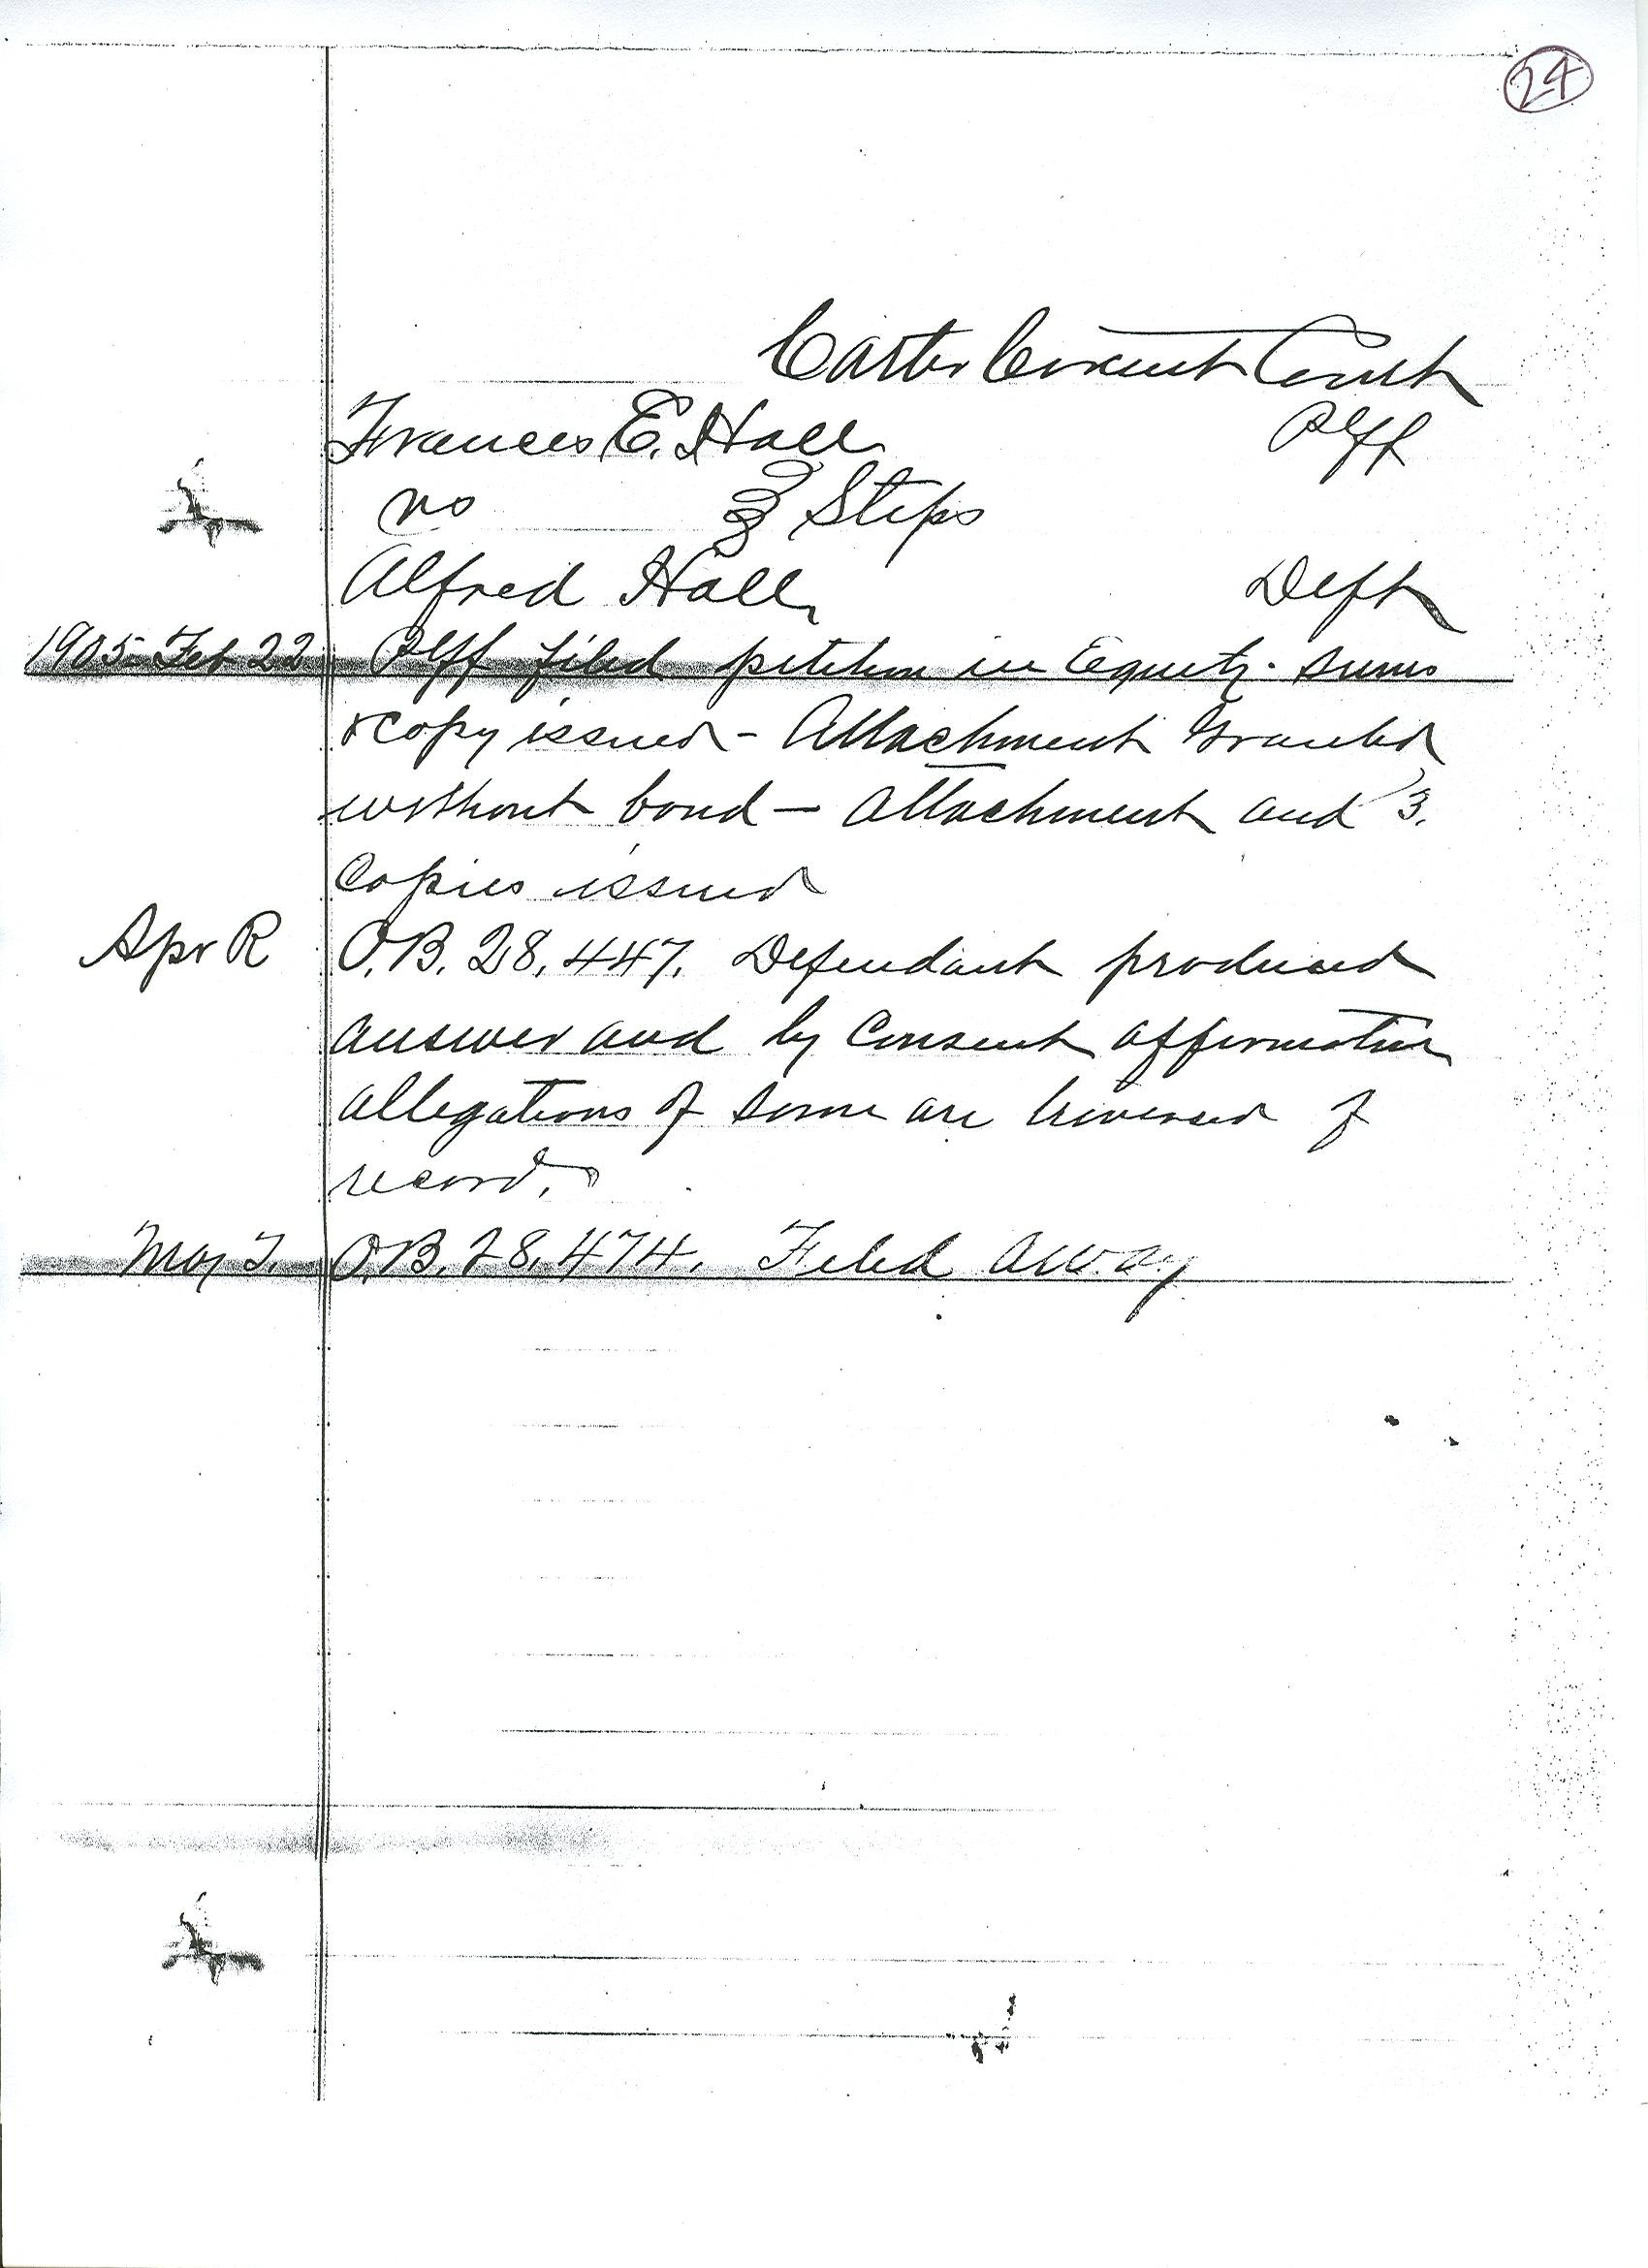 24
Carter Circuit Court
Frances E. Hall Plff
vs Steps
Alfred Hall, Deft
1905 Feb 22 Plff filed petition in Equity. Sums
& copy issued - Attachment Granted
without bond - Attachment and 3.
Copies issued
Apr R O.B. 28, 447. Defendant produced
answer and by Consent affirmative
allegations of same are traversed of
record.
May T. O.B. 28, 474. Filed away